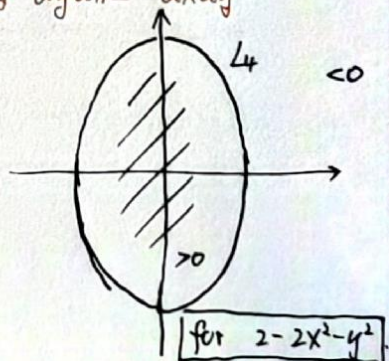 L4
<0
>0
for 2-2x²-y²